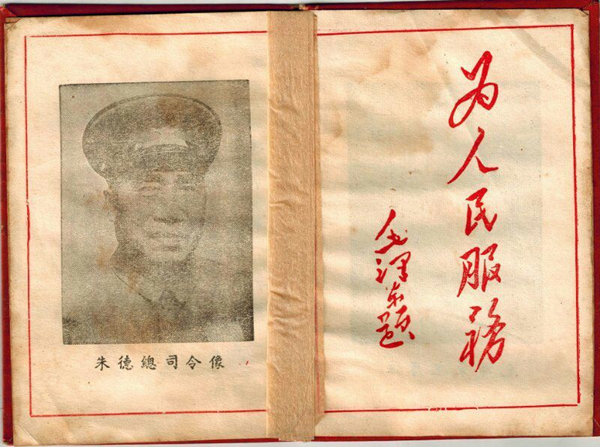 朱德總司令像
为人民服務
毛澤东题